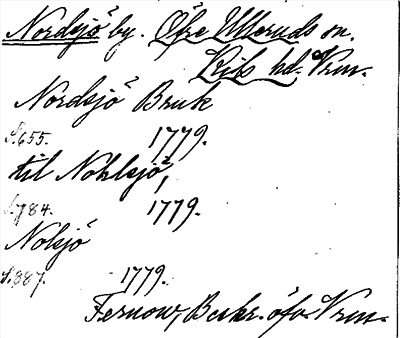 Nordsjö by. Öfre Ulleruds sn.
Kils hd. Vrm.
Nordsjö Bruk
S.655. 1779.
til Nohlsjö,
S.784. 1779.
Nolsjö
S.887. 1779.
Fernow, Beskr. öfv. Vrm.